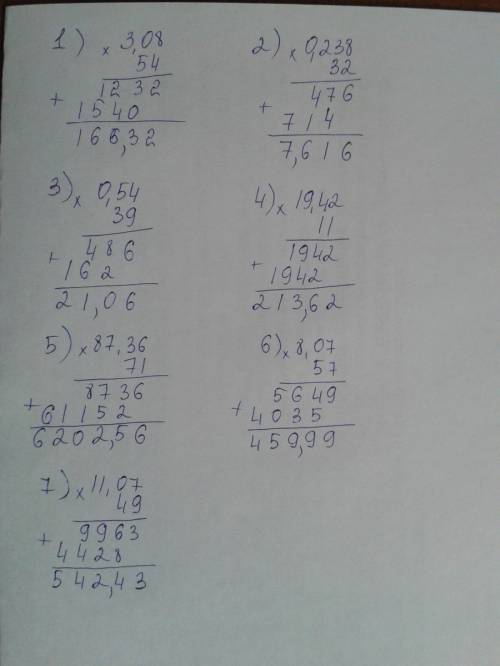 1) × 3,08
54
1232
+ 1540
166,32
2) × 0,238
32
476
+ 714
7,616
3) × 0,54
39
486
+ 162
21,06
4) × 19,42
11
1942
+ 1942
213,62
5) × 87,36
71
8736
+ 61152
6202,56
6) × 8,07
57
5649
+ 4035
459,99
7) × 11,07
49
9963
+ 4428
542,43